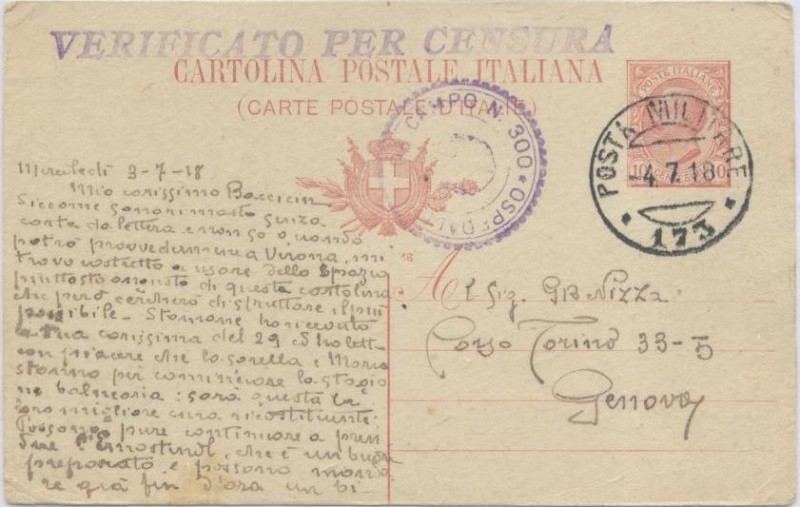 VERIFICATO PER CENSURA
CARTOLINA POSTALE ITALIANA
(CARTE POSTALE D'ITALIE)
POSTE ITALIANE
10 CENTESIMI 10
CAMPO N. 300 * OSPEDAL
POSTA MILITARE
-4.7.18
* 173 *
18
Mercoledì 3-7-18
Mio carissimo Baccicin
Siccome sono rimasto senza
carta da lettera e non so quando
potrò provvedermene a Verona, mi
trovo costretto a usare dello spazio
piuttosto angusto di questa cartolina
che però cercherò di sfruttare il più
possibile. Stamane ho ricevuto
la tua carissima del 29 ed ho lett
con piacere che la sorella e Maria
stanno per cominciare la stagio
ne balnearia: sarà questa la
loro migliore cura ricostituente.
Possono pure continuare a pren
dere, che è un buon
preparato e possono manda
re già fin d'ora un bi-
Al Sig. GB Nizza
Corso Torino 33-5
Genova